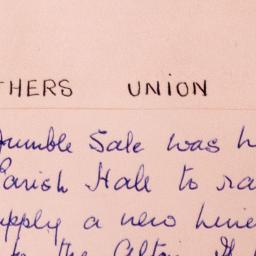 THERS UNION
Jumble Sale was h
Parish Hall to ra
upply a new
to the Altar